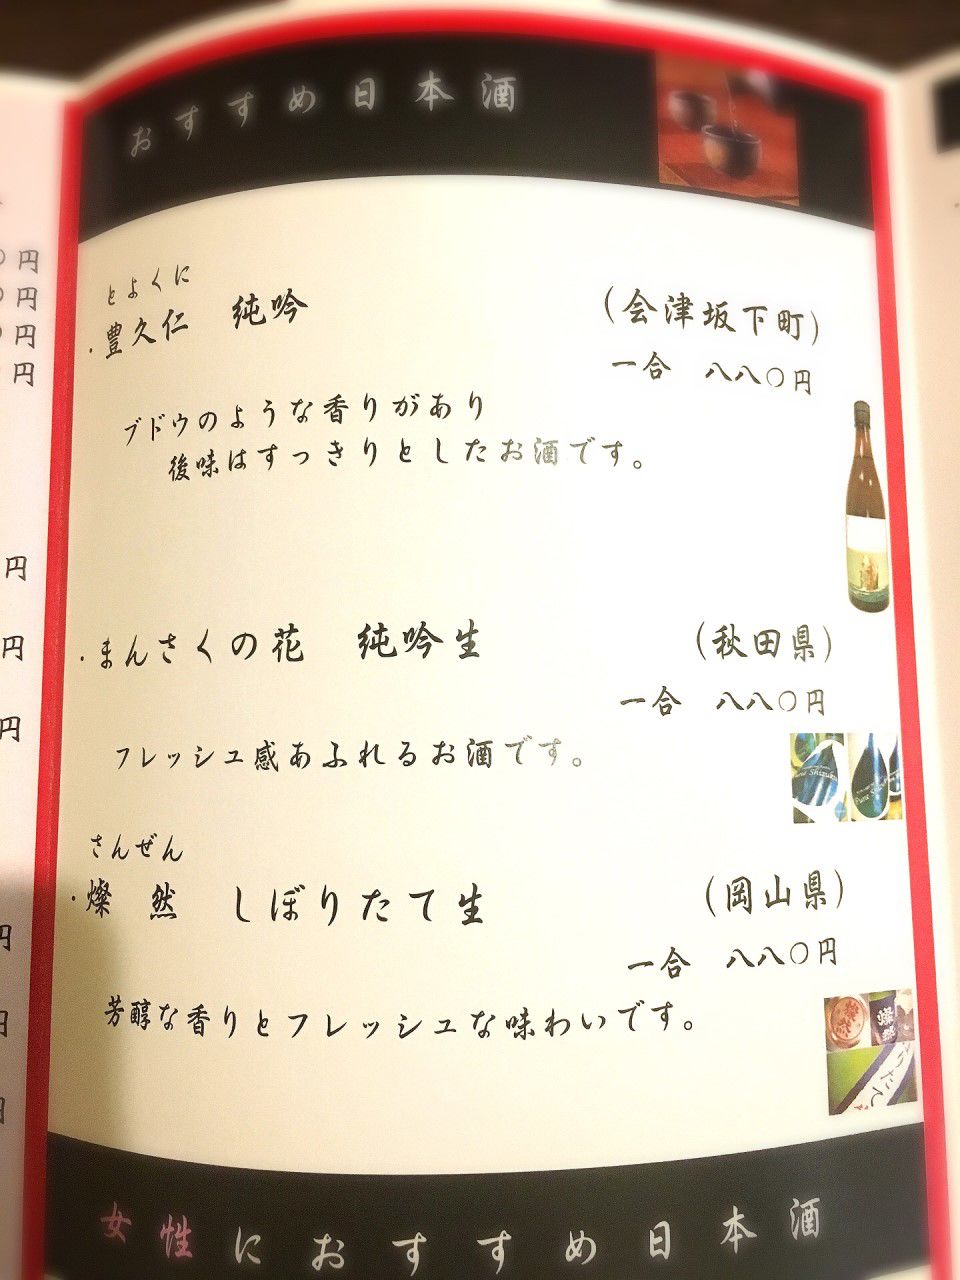 おすすめ日本酒
とよくに
・豊久仁 純吟 (会津坂下町)
一合 八八〇円
ブドウのような香りがあり
後味はすっきりとしたお酒です。
・まんさくの花 純吟生 (秋田県)
一合 八八〇円
フレッシュ感あふれるお酒です。
さんぜん
・燦然 しぼりたて生 (岡山県)
一合 八八〇円
芳醇な香りとフレッシュな味わいです。
女性におすすめ日本酒
円
円
円
円
円
円
円
円
円
円